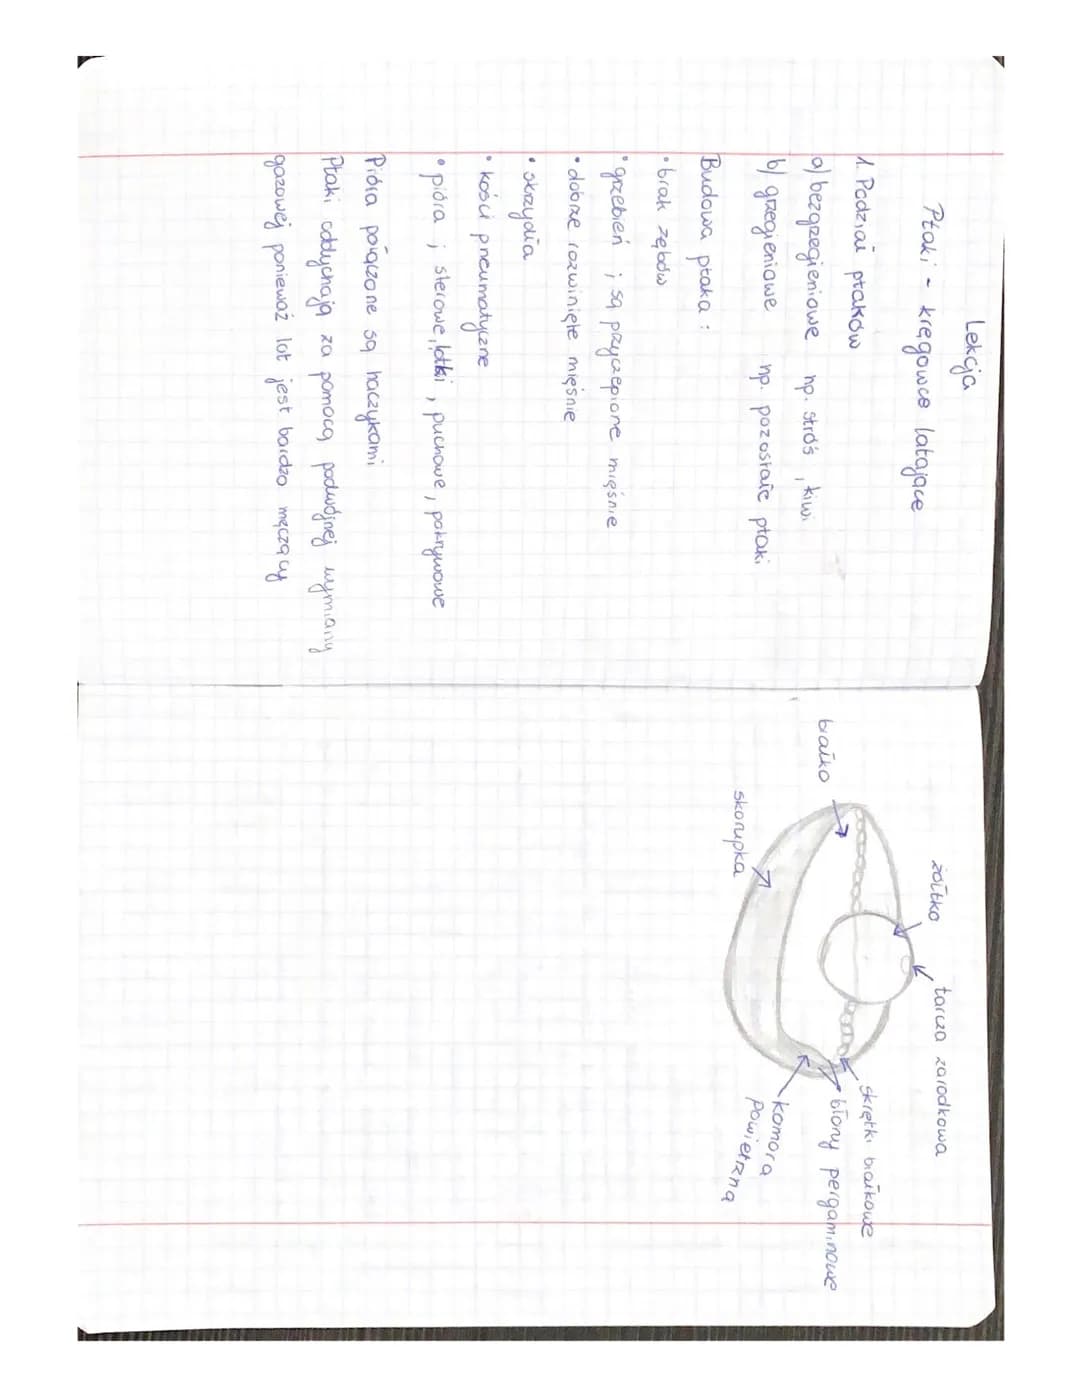 Lekcja
Ptaki - kręgowce latające
1. Podział ptaków
a) bezgrzegieniowe np. stroś, kiwi
b) grzegieniowe np. pozostałe ptaki
Budowa ptaka :
• brak zębów
• grzebień ; są przyczepione mięśnie
• dobrze rozwinięte mięśnie
• skrzydła
• kości pneumatyczne
• pióra ; sterowe, lotki, puchowe, pokrywowe
Pióra połączone są haczykami
Ptaki oddychają za pomocą podwójnej wymiany
gazowej ponieważ lot jest bardzo męczący
żółtko
tarcza zarodkowa
białko
skrętki białkowe
błony pergaminowe
komora
powietrzną
skorupka